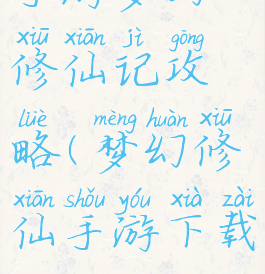 xiū xiān jì gōng
修仙记攻
lüè mèng huàn xiū
略(梦幻修
xiān shǒu yóu xià zài
仙手游下载